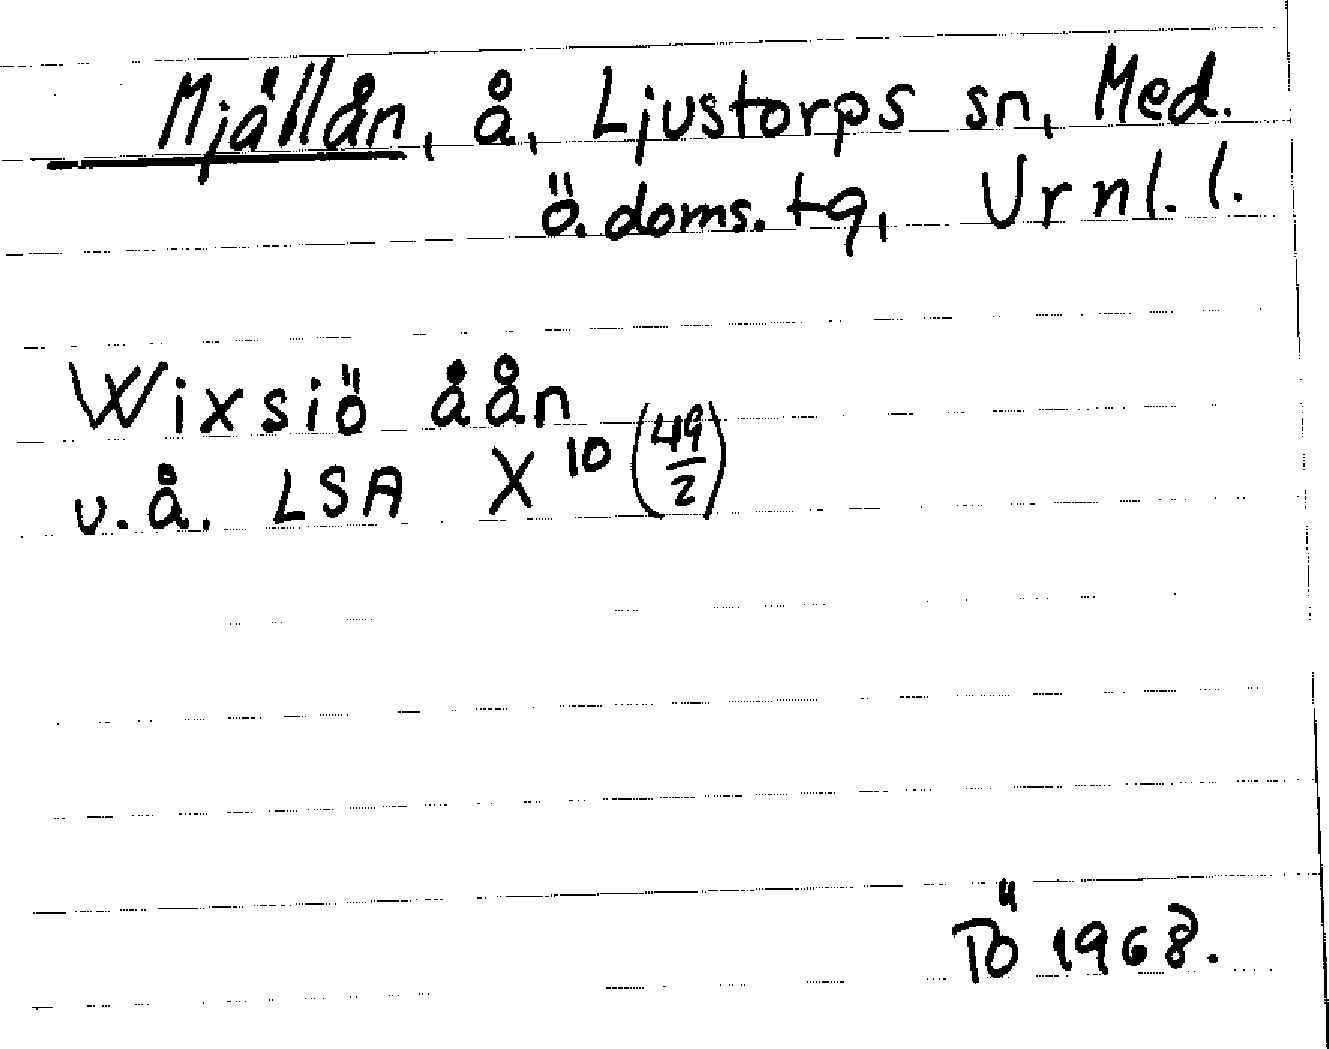 Mjällån, å, Ljustorps sn, Med.
ö. doms. tg, Ur nl. l.
Wixsiö åån
v. å. LSA X 10 (49/2)
PÖ 1968.